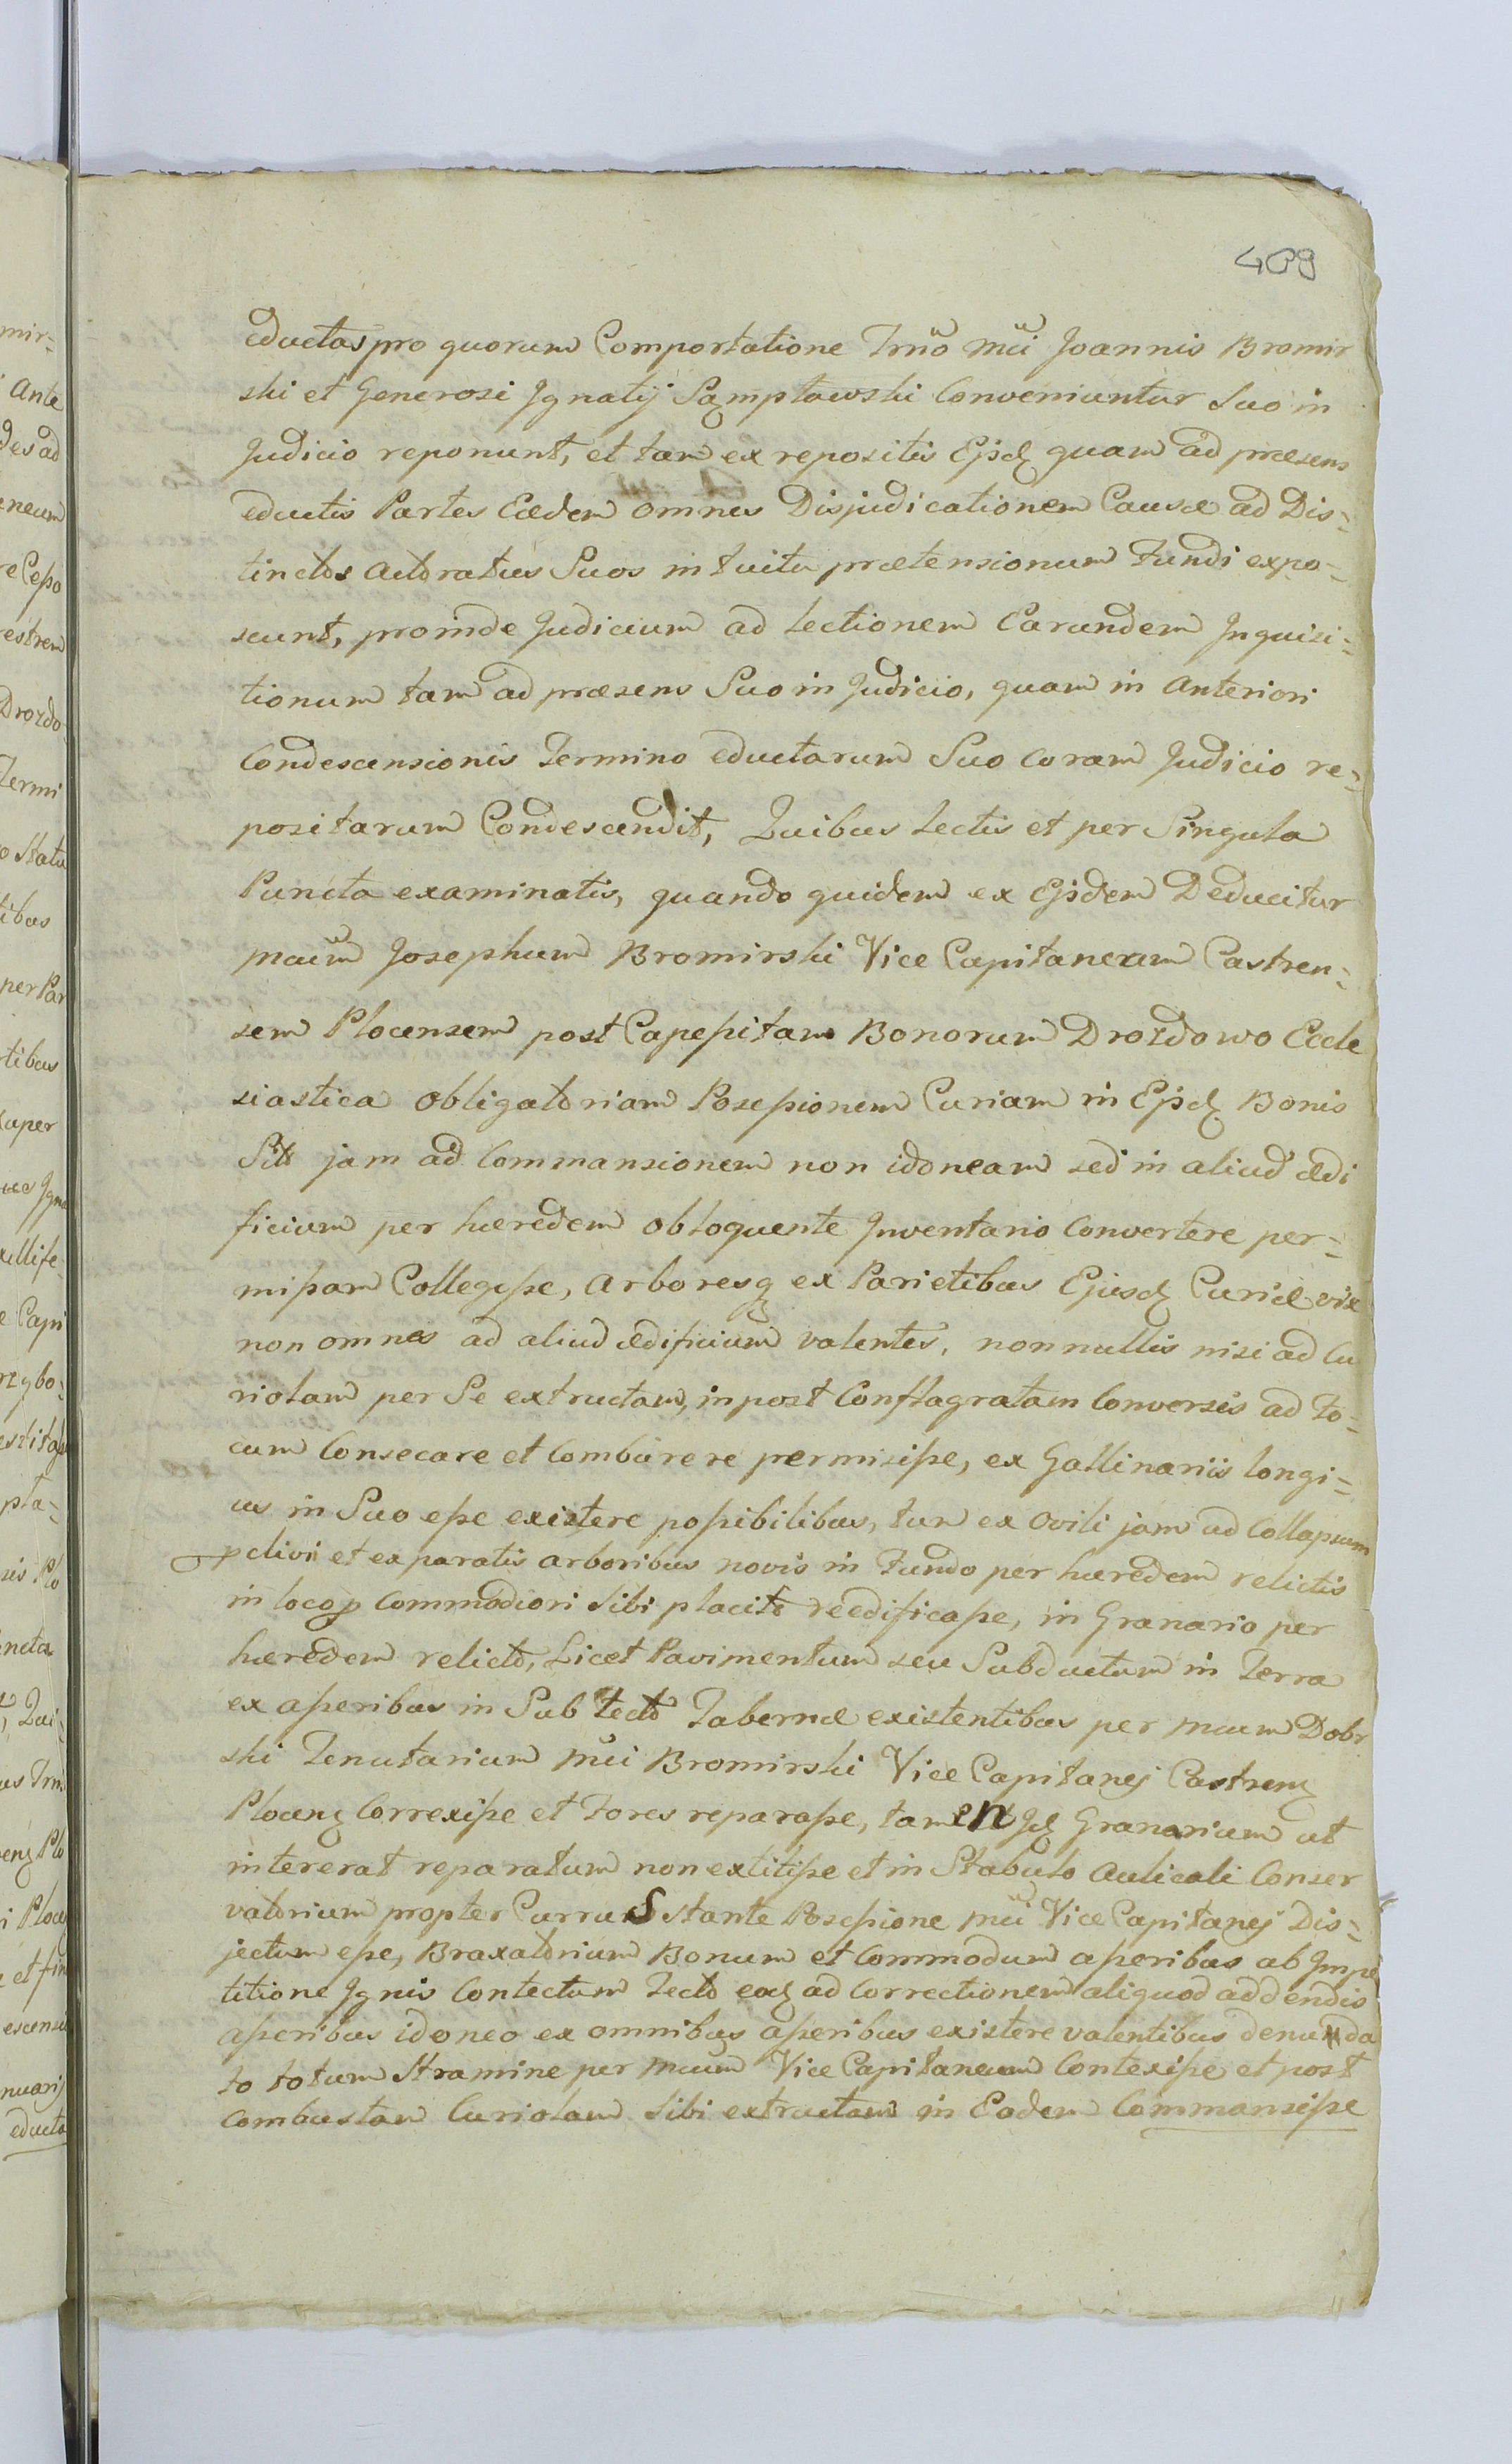 409
eductas pro quorum Comportatione Trno Mci Joannis Bromir
ski et Generosi Jgnatij Sąmpławski Conveniuntur Suo in
Judicio reponunt, et tam ex repositis Ejsdę quam ad præsens
eductis Partes Eædem omnes Disjudicationem Causæ ad Dis=
tinctos Actoratus Suos intuitu prætensionum Fundi expo=
scunt, proinde Judicium ad Lectionem Earundem Jnquisi=
tionum tam ad præsens Suo in Judicio, quam in Anteriori
Condescensionis Termino eductarum Suo coram Judicio re=
positarum Condescendit, Quibus Lectis et per Singula
Puncta examinatis, quando quidem ex Ejsdem Deducitur
Mcum Josephum Bromirski Vice Capitaneum Castren=
sem Plocensem post Capeßitam Bonorum Drozdowo Eccle
siastica obligatoriam Poseßionem Curiam in Ejsdę Bonis
Sitt jam ad Commansionem non idoneam sed in aliud ædi
ficium per hæredem obloquente Jnventario Convertere per=
mißam Collegiße, Arboresq ex Parietibus Ejusdę Curiæ vix
non omnes ad aliud ædificium valentes, nonnullis nisi ad Cu
riolam per Se extructam, inpost Conflagratam Conversis ad Fo=
cum Consecare et Comburere permisiße, ex Gallinariis Longi=
us in Suo eße existere poßibilibus, tum ex Ovili jam ad Collapsum
pclivi et ex paratis arboribus novis in Fundo per hæredem relictis
in locoq Commodiori Sibi placito reedificaße, in Granario per
hæredem relicto, Licet Pavimentum seu Subductum in Terra
ex aßeribus in Sub tecto Tabernæ existentibus per Mcum Dobr
ski Tenutarium Mci Bromirski Vice Capitanej Castrenę
Plocenę Correxiße et Fores reparaße, tamen Jdę Granarium ut
intererat reparatum non extitiße et in Stabulo Aulicali Conser
vatorium propter Currus stante Poseßione Mci Vice Capitanej Dis=
jectum eße, Braxatorium Bonum et Commodum aßeribus ab Jmpe
titione Jgnis Contectum Tecto eodę ad Correctionem aliquod addendis
aßeribus idoneo ex omnibus aßeribus existere valentibus denuda
to totum Stramine per Mcum Vice Capitaneum Contexiße et post
Combustam Curiolam Sibi extructam in Eodem Commansiße